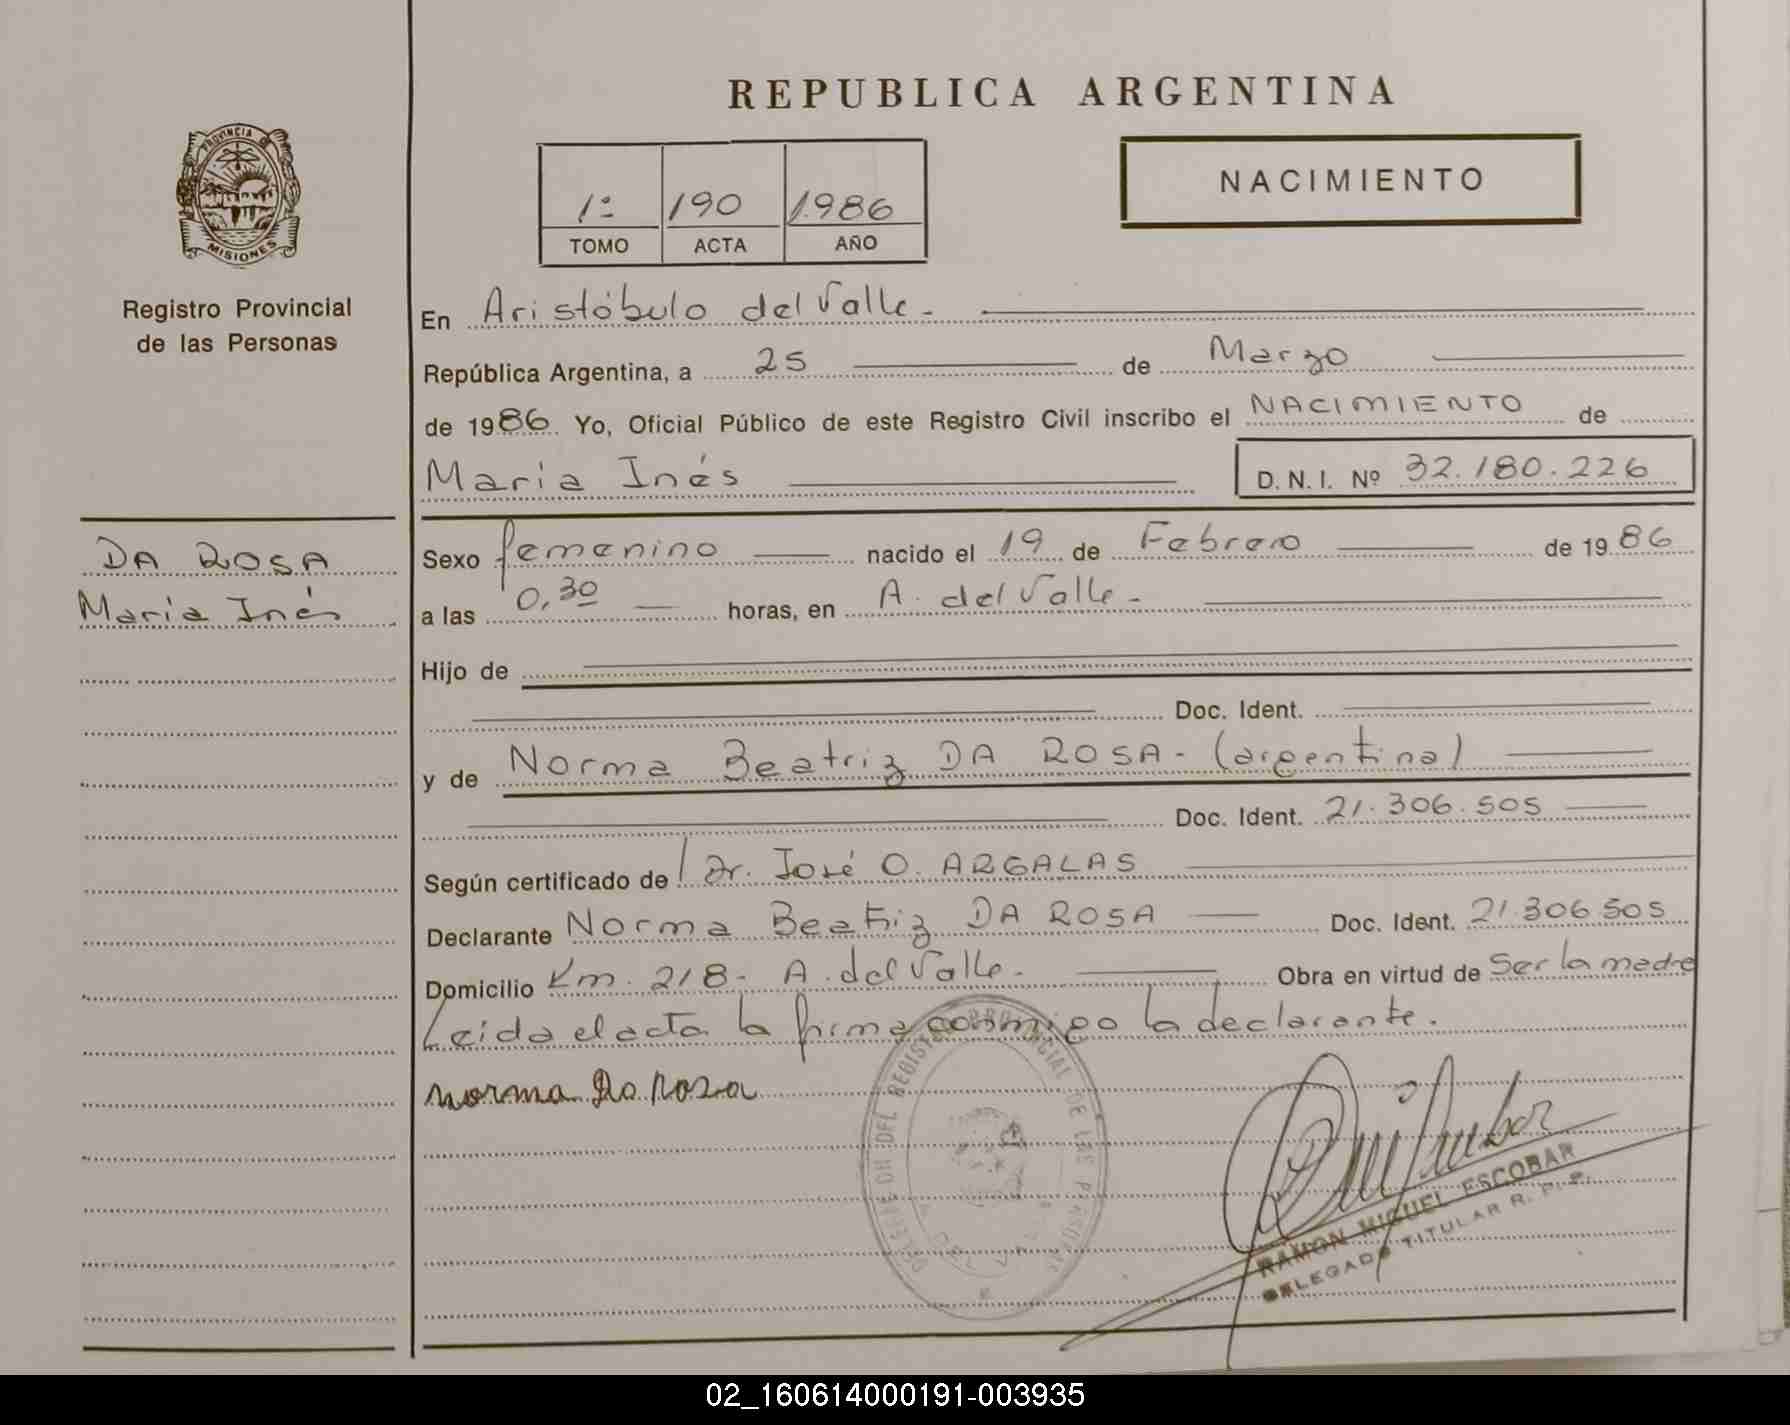 REPUBLICA ARGENTINA
PROVINCIA
MISIONES
Registro Provincial
de las Personas
1º 190 1986
TOMO ACTA AÑO
NACIMIENTO
En Aristóbulo del Valle.-
República Argentina, a 25 de Marzo
de 1986 Yo, Oficial Público de este Registro Civil inscribo el NACIMIENTO de
María Inés D. N. I. Nº 32.180.226
DA ROSA
María Inés
Sexo femenino nacido el 19 de Febrero de 1986
a las 0,30 horas, en A. del Valle.-
Hijo de
Doc. Ident.
y de Norma Beatriz DA ROSA- (argentina)
Doc. Ident. 21.306.505
Según certificado de Dr. José O. ARGALAS
Declarante Norma Beatriz DA ROSA Doc. Ident. 21.306.505
Domicilio Km. 218- A. del Valle.- Obra en virtud de Ser la madre
Leida el acta la firma conmigo la declarante.
Norma Da Rosa
DEL REGISTRO PROVINCIAL DE LAS PERSONAS
RAMON MIGUEL ESCOBAR
DELEGADO TITULAR R. P. P.
02_160614000191-003935